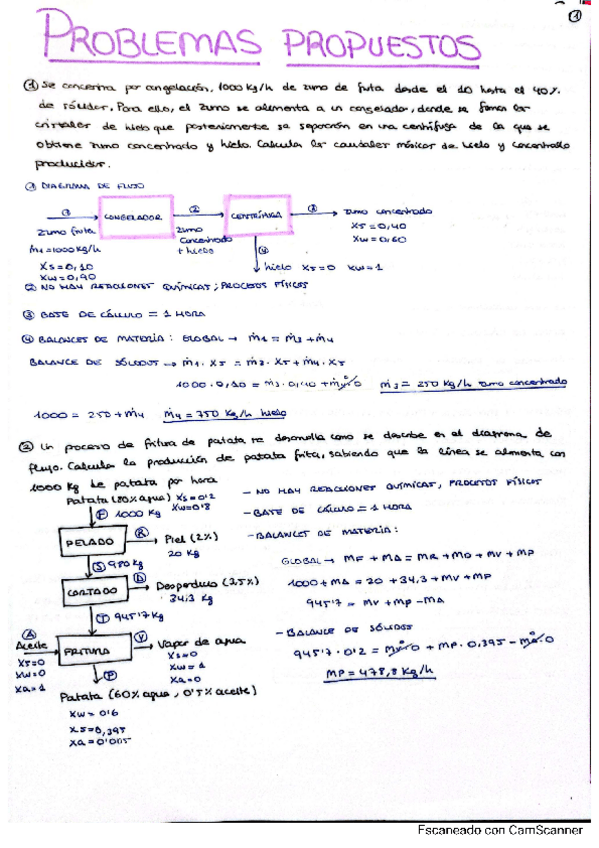 ①
PROBLEMAS PROPUESTOS
① Se concentra por congelación, 1000 kg/h de zumo de fruta desde el 10 hasta el 40%
de sólidos. Para ello, el zumo se alimenta a un congelador, donde se forman los
cristales de hielo que posteriormente se separarán en una centrífuga de la que se
obtiene zumo concentrado y hielo. Calcula los caudales másicos de hielo y concentrado
producidos.
① DIAGRAMA DE FLUJO
① CONGELADOR ② CENTRÍFUGA ③ zumo concentrado
zumo fruta
ṁ1 = 1000 kg/h
xs = 0,10
xw = 0,90
zumo
concentrado
+ hielo
xs = 0,40
xw = 0,60
④ hielo xs = 0 xw = 1
② NO HAY REACCIONES QUÍMICAS; PROCESOS FÍSICOS
③ BASE DE CÁLCULO = 1 HORA
④ BALANCES DE MATERIA: GLOBAL → ṁ1 = ṁ3 + ṁ4
BALANCE DE SÓLIDOS → ṁ1 · xs = ṁ3 · xs + ṁ4 · xs
1000 · 0,10 = ṁ3 · 0,40 + ṁ4 · 0 ṁ3 = 250 kg/h zumo concentrado
1000 = 250 + ṁ4 ṁ4 = 750 kg/h hielo
② Un proceso de fritura de patata se desarrolla como se describe en el diagrama de
flujo. Calcula la producción de patata frita, sabiendo que la línea se alimenta con
1000 kg de patata por hora
Patata (80% agua) xs = 0'2
xw = 0'8
Ⓕ 1000 kg
PELADO Ⓡ Piel (2%)
20 kg
Ⓢ 980 kg
CORTADO Ⓓ Desperdicio (3,5%)
34,3 kg
Ⓣ 945'7 kg
Ⓐ Aceite
xs = 0
xw = 0
xa = 1
FRITURA Ⓥ Vapor de agua
xs = 0
xw = 1
xa = 0
Ⓟ
Patata (60% agua, 0'5% aceite)
xw = 0'6
xs = 0,395
xa = 0'005
- NO HAY REACCIONES QUÍMICAS, PROCESOS FÍSICOS
- BASE DE CÁLCULO = 1 HORA
- BALANCES DE MATERIA:
GLOBAL → MF + MA = MR + MD + MV + MP
1000 + MA = 20 + 34,3 + MV + MP
945'7 = MV + MP - MA
- BALANCE DE SÓLIDOS
945'7 · 0'2 = MV · 0 + MP · 0,395 - MA · 0
MP = 478,8 kg/h
Escaneado con CamScanner